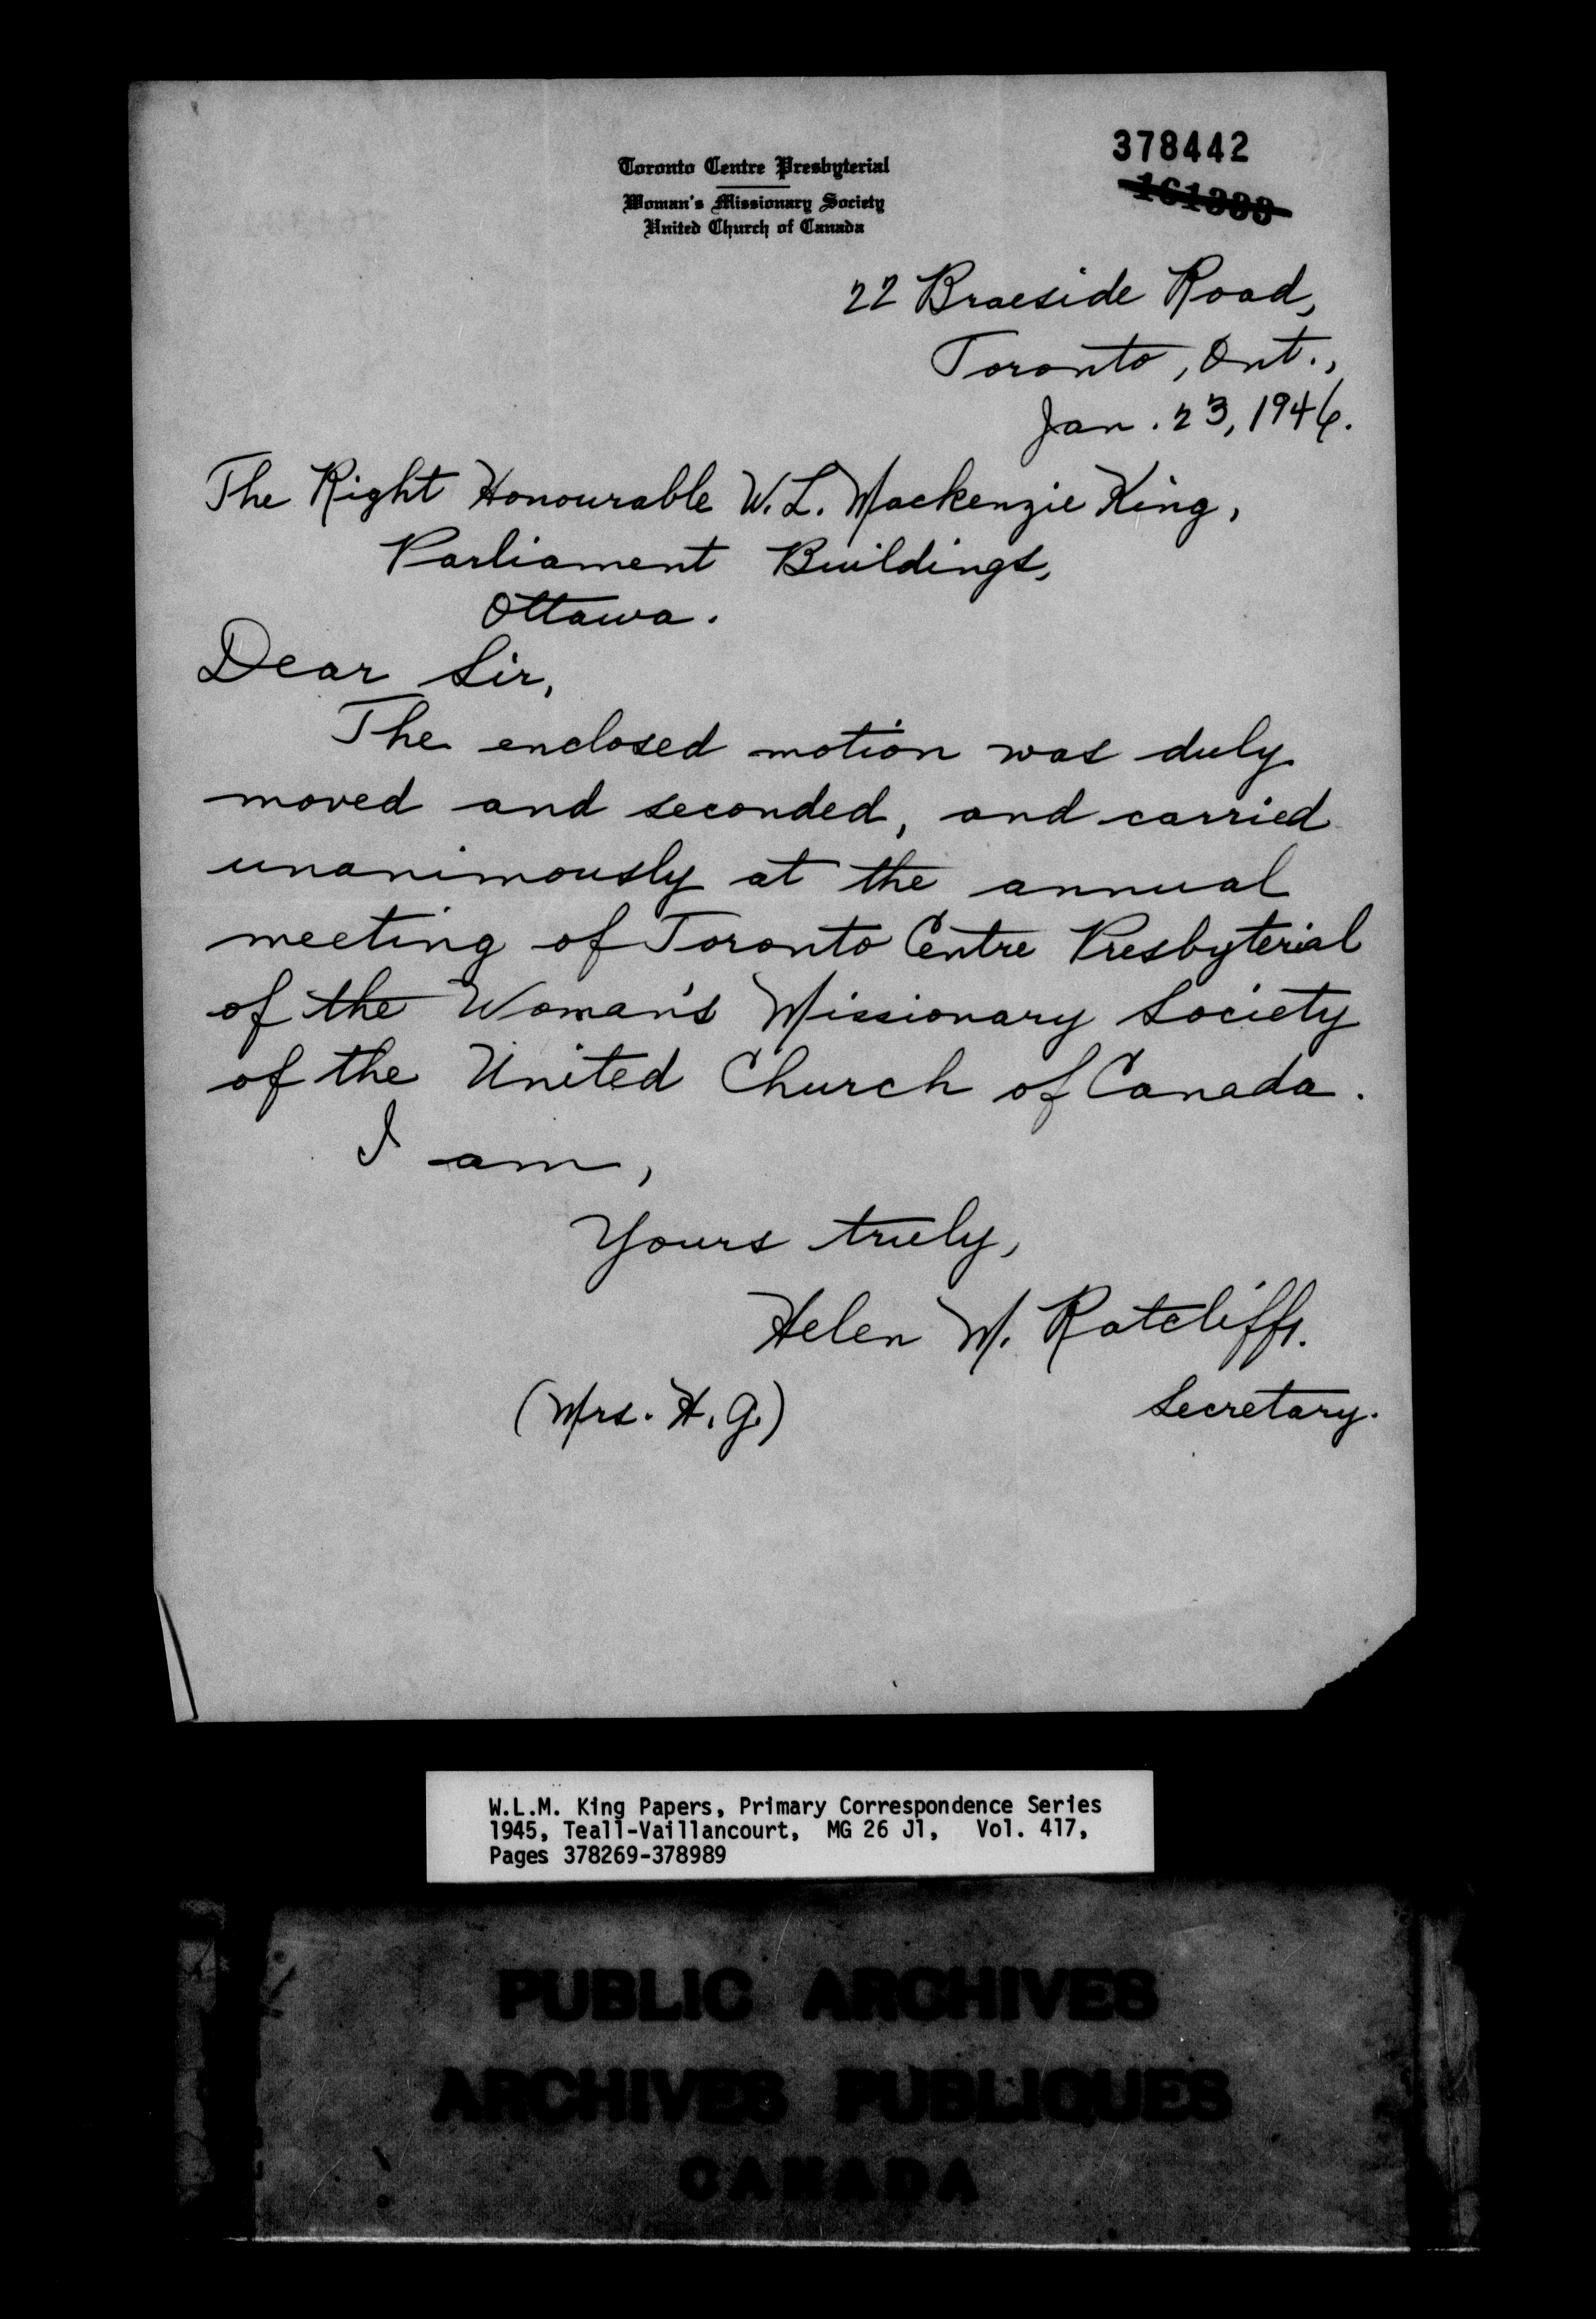 378442
Toronto Centre Presbyterial
Woman's Missionary Society
United Church of Canada
22 Braeside Road,
Toronto, Ont.,
Jan. 23, 1946.
The Right Honourable W. L. Mackenzie King,
Parliament Buildings,
Ottawa.
Dear Sir,
The enclosed motion was duly
moved and seconded, and carried
unanimously at the annual
meeting of Toronto Centre Presbyterial
of the Woman's Missionary Society
of the United Church of Canada.
I am,
Yours truly,
Helen M. Ratcliffe.
(Mrs. H. G.) Secretary.
W.L.M. King Papers, Primary Correspondence Series
1945, Teall-Vaillancourt, MG 26 J1, Vol. 417,
Pages 378269-378989
PUBLIC ARCHIVES
ARCHIVES PUBLIQUES
CANADA